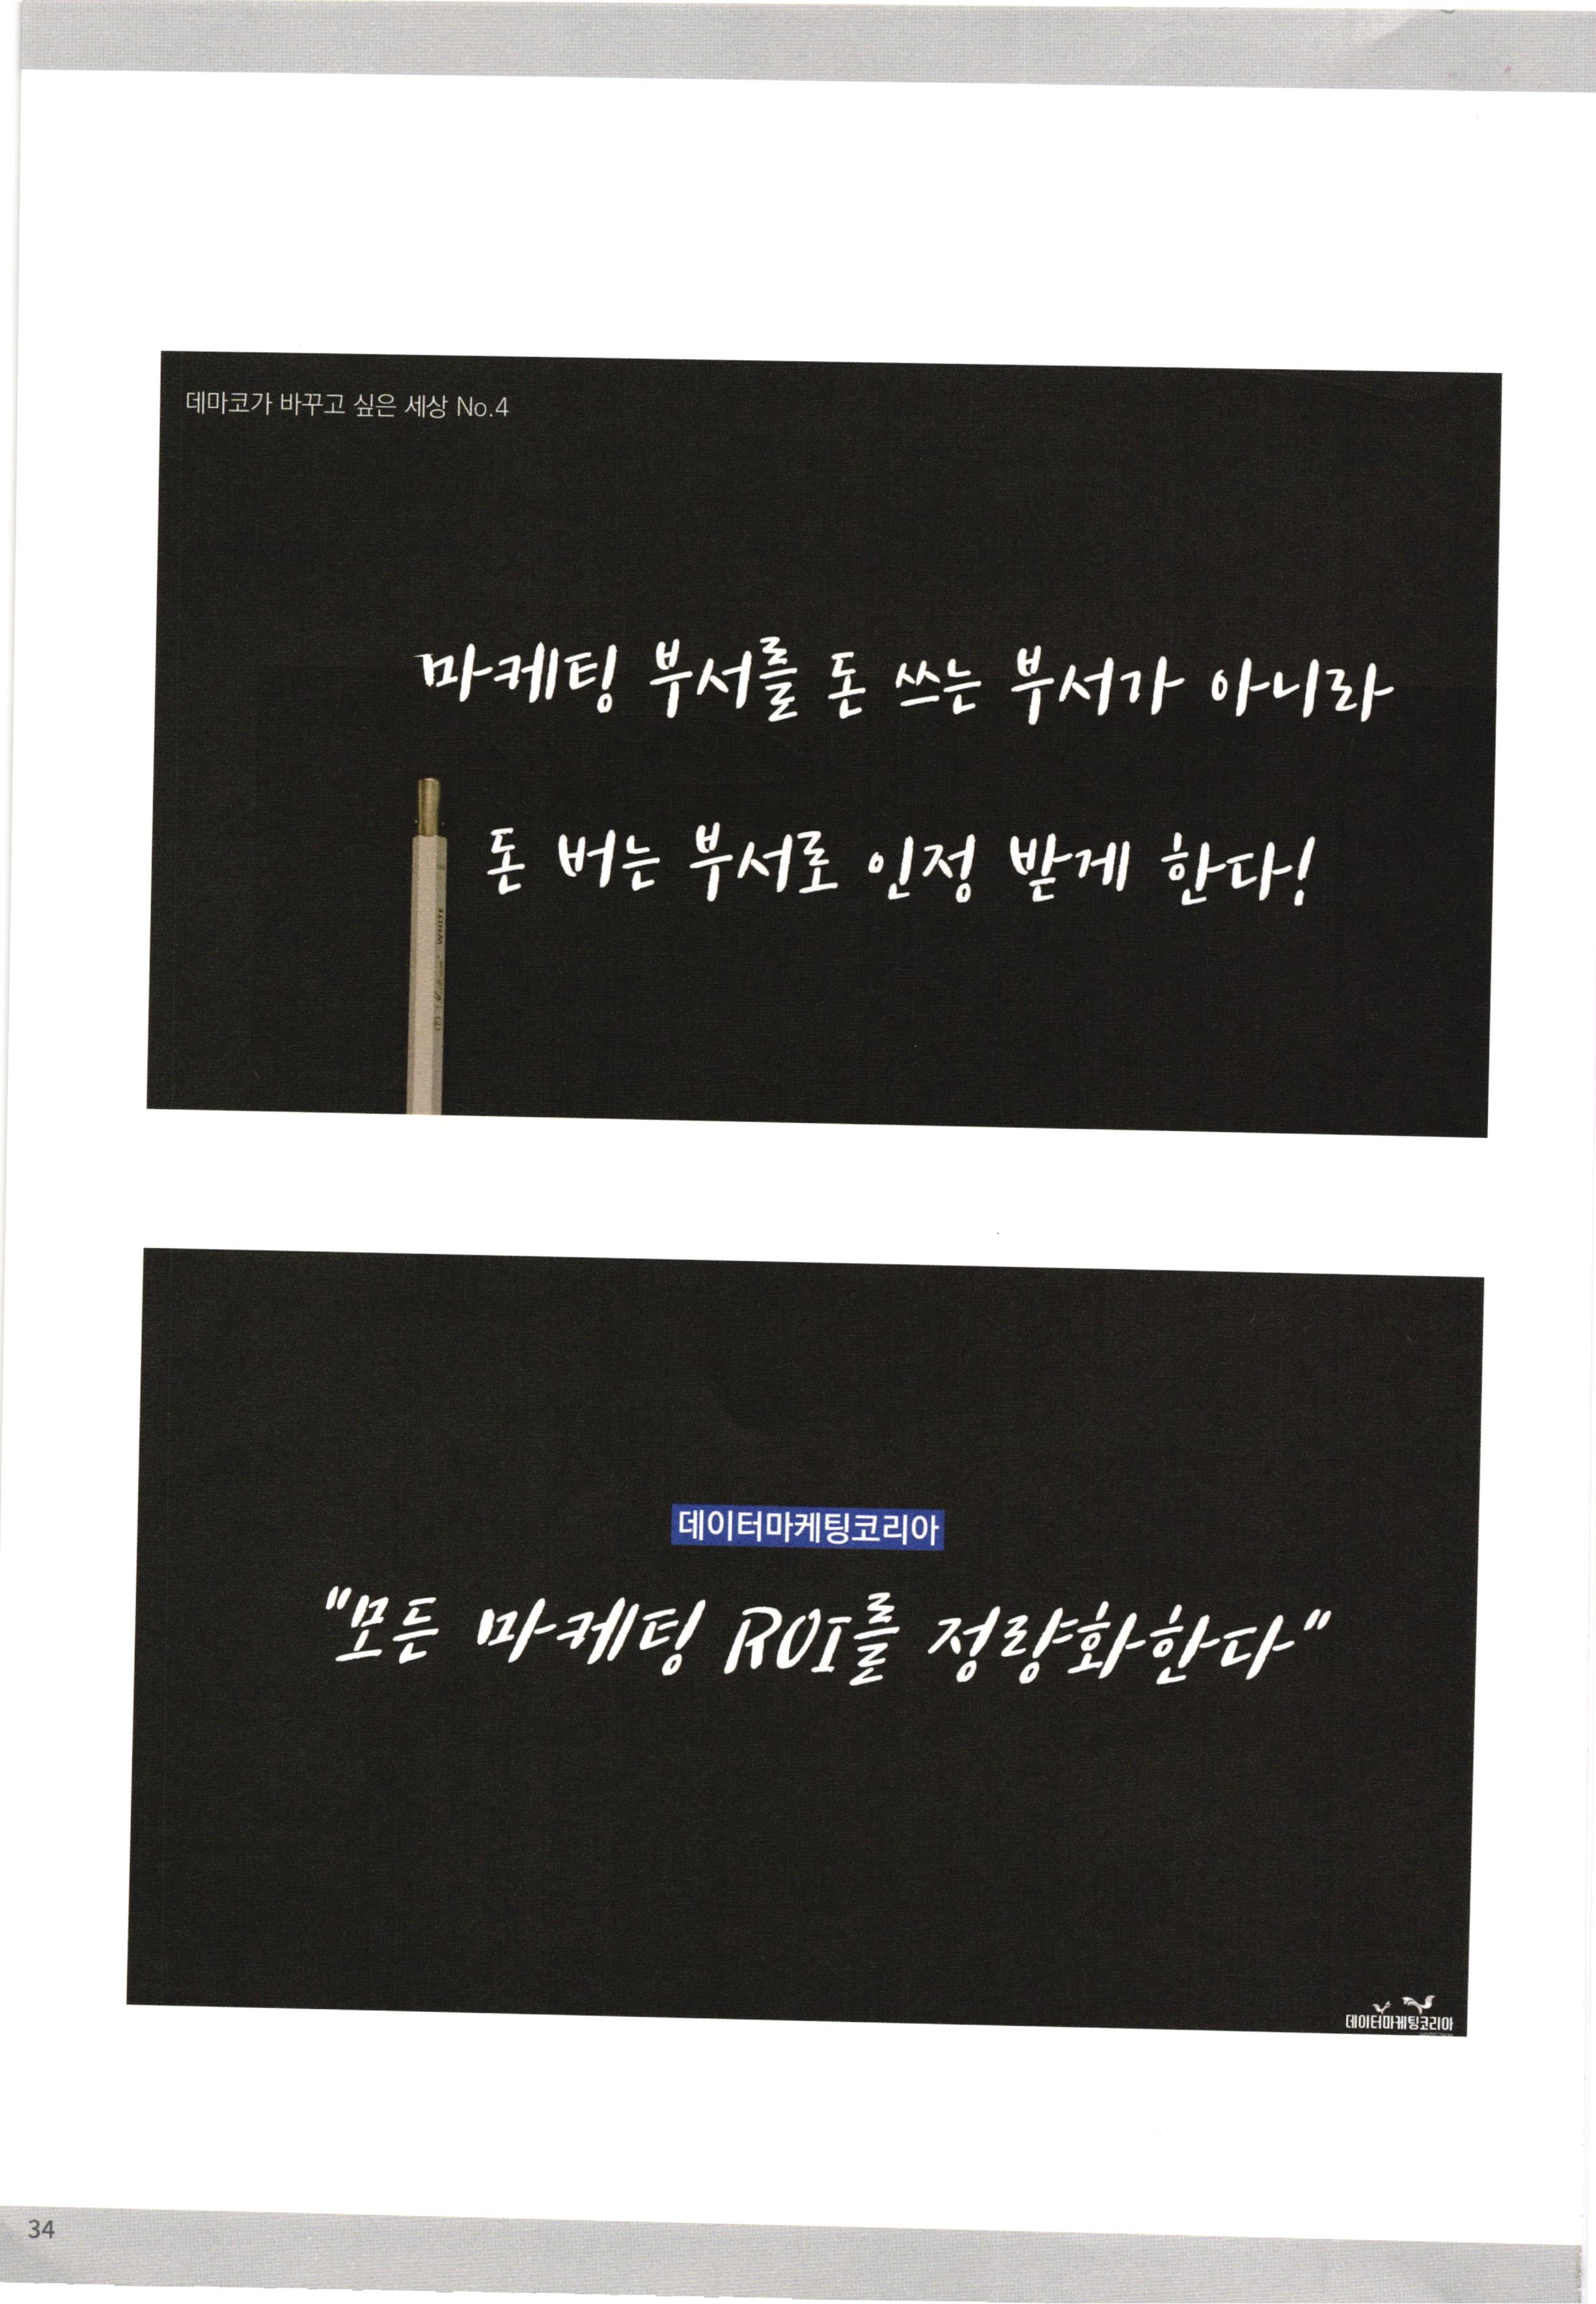 데마코가 바꾸고 싶은 세상 No.4
마케팅 부서를 돈 쓰는 부서가 아니라
돈 버는 부서로 인정 받게 한다!
WHITE
데이터마케팅코리아
"모든 마케팅 ROI를 정량화한다"
데이터마케팅코리아
34